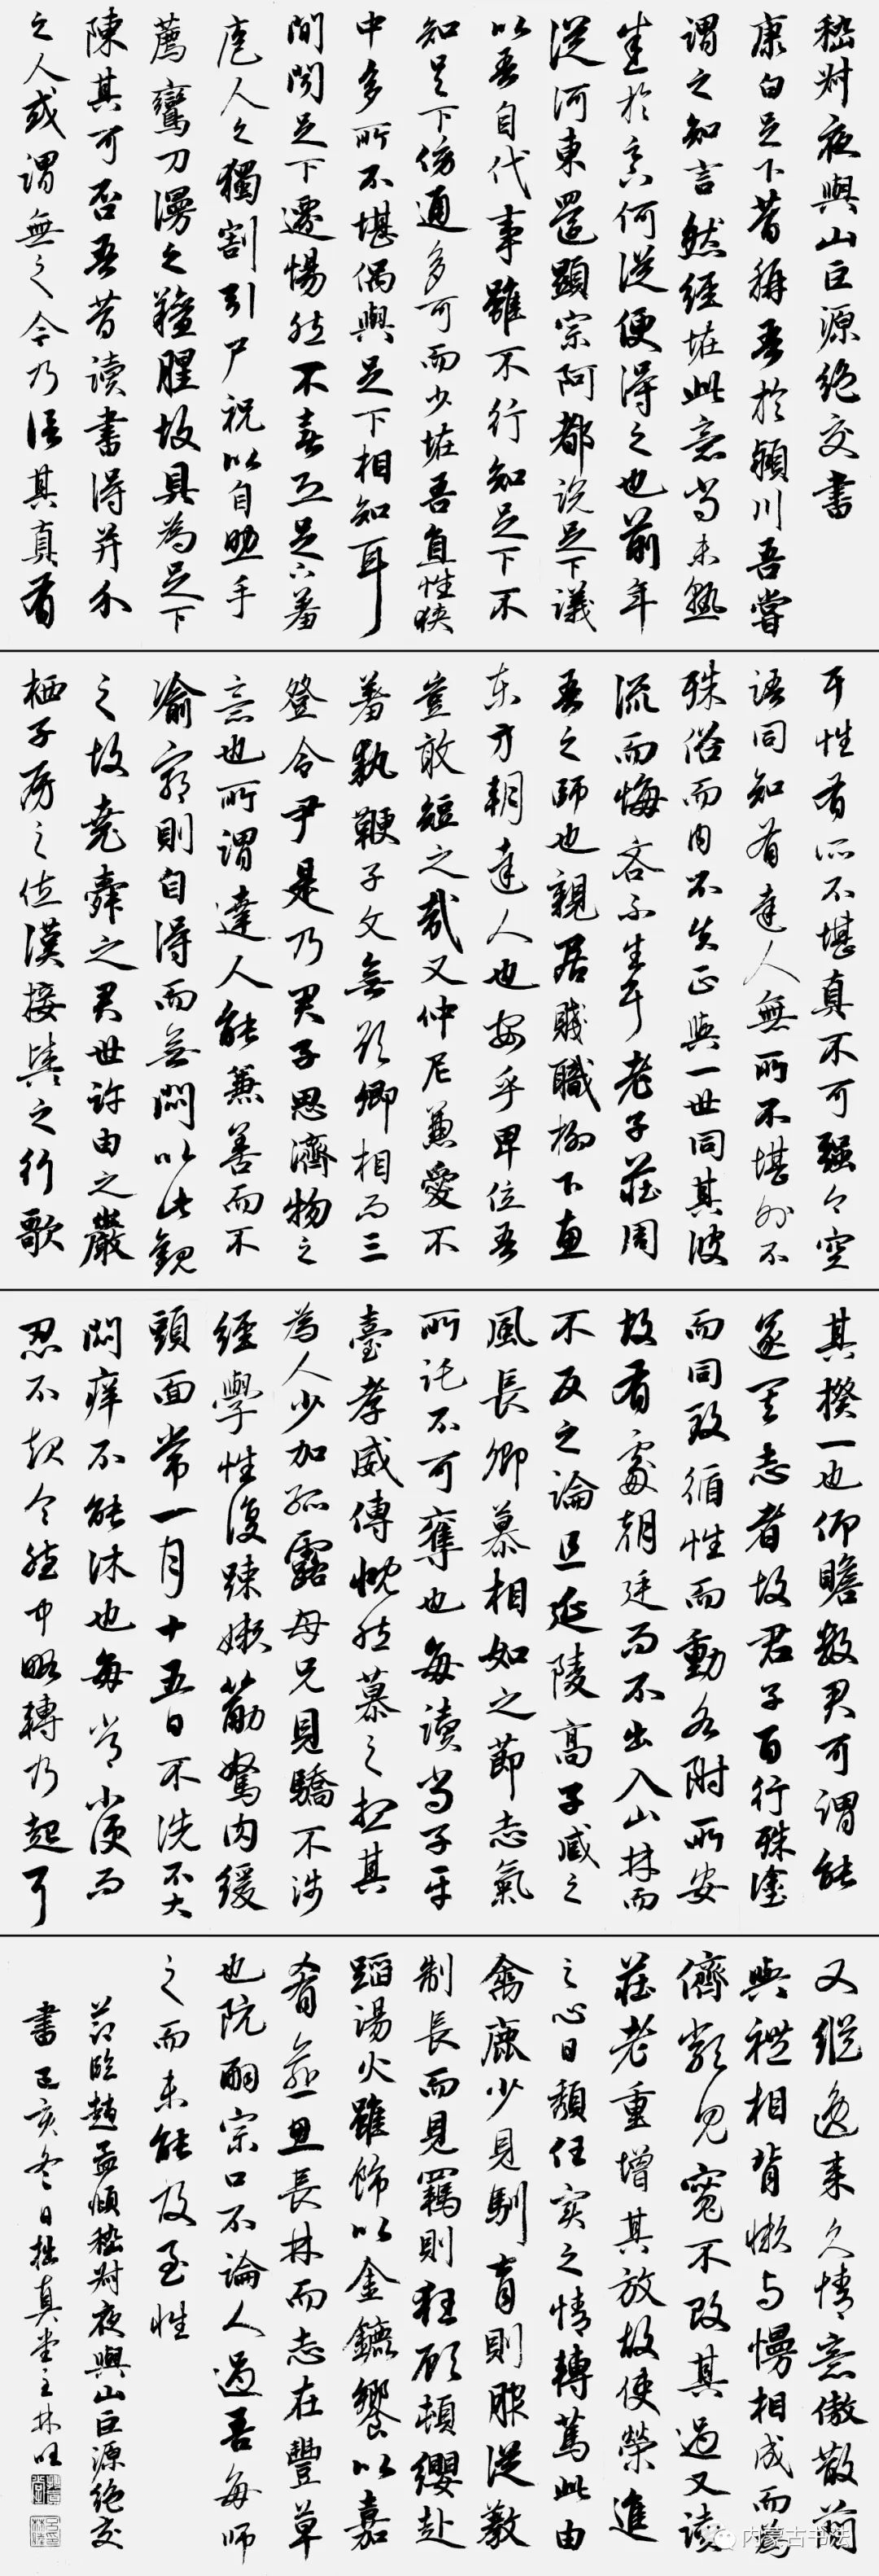 嵇叔夜與山巨源絕交書
康白足下昔稱吾於潁川吾嘗
謂之知言然經怪此意尚未熟
悉於足下何從便得之也前年
從河東還顯宗阿都說足下議
以吾自代事雖不行知足下不
知足下傍通多可而少怪吾直性狹
中多所不堪偶與足下相知耳
閒聞足下遷惕然不喜恐足下羞
庖人之獨割引尸祝以自助手
薦鸞刀漫之羶腥故具為足下
陳其可否吾昔讀書得并介
之人或謂無之今乃信其真有
耳性有所不堪真不可強今空
語同知有達人無所不堪外不
殊俗而內不失正與一世同其波
流而悔吝不生耳老子莊周
吾之師也親居賤職柳下惠
東方朔達人也安乎卑位吾
豈敢短之哉又仲尼兼愛不
羞執鞭子文無欲卿相而三
登令尹是乃君子思濟物之
意也所謂達人能兼善而不
渝窮則自得而無悶以此觀
之故堯舜之君世許由之巖
栖子房之佐漢接輿之行歌
其揆一也仰瞻數君可謂能
遂其志者故君子百行殊塗
而同致循性而動各附所安
故有處朝廷而不出入山林而
不反之論且延陵高子臧之
風長卿慕相如之節志氣
所託不可奪也每讀尚子平
臺孝威傳慨然慕之想其
為人少加孤露母兄見驕不涉
經學性復疎嬾筋駑肉緩
頭面常一月十五日不洗不大
悶癢不能沐也每常小便而
忍不起令胞中略轉乃起耳
又縱逸來久情意傲散簡
與禮相背懶與慢相成而為
儕類見寬不攻其過又讀
莊老重增其放故使榮進
之心日頹任實之情轉篤此由
禽鹿少見馴育則服從教
制長而見羈則狂顧頓纓赴
蹈湯火雖飾以金鑣饗以嘉
肴愈思長林而志在豐草
也阮嗣宗口不論人過吾每師
之而未能及至性
節臨趙孟頫嵇叔夜與山巨源絕交
書己亥冬日拙真堂主林旺
内蒙古书法